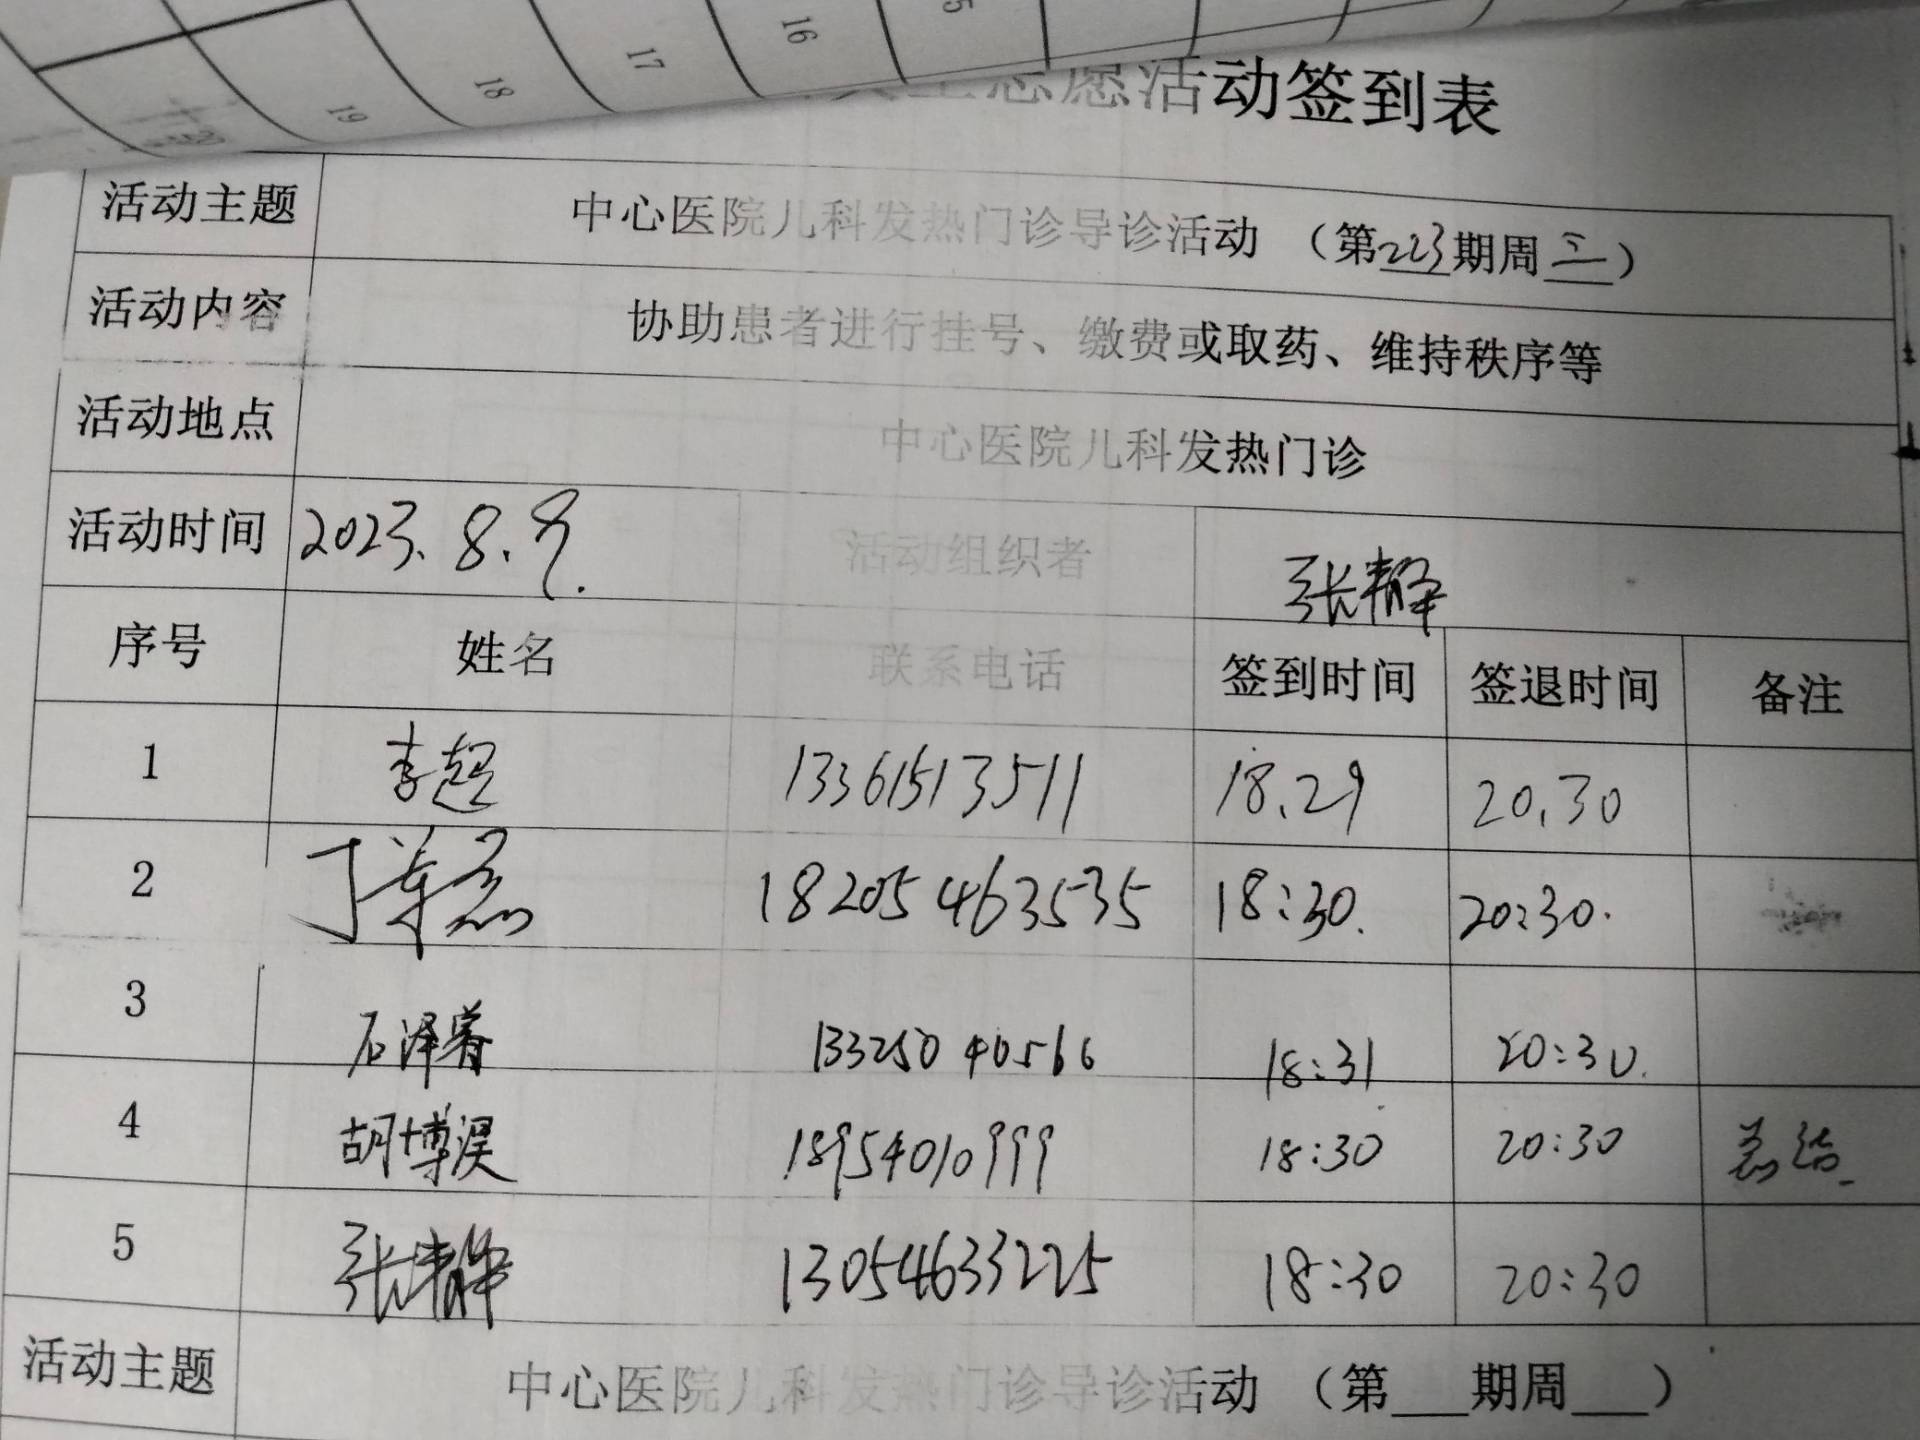 16
17
18
19
志愿活动签到表
活动主题 中心医院儿科发热门诊导诊活动 （第223期周三）
活动内容 协助患者进行挂号、缴费或取药、维持秩序等
活动地点 中心医院儿科发热门诊
活动时间 2023.8.9. 活动组织者 张静
序号 姓名 联系电话 签到时间 签退时间 备注
1 李超 13361513511 18.29 20.30
2 丁 18205463535 18:30. 20:30.
3 石泽睿 13325040566 18:31 20:30.
4 胡博淏 18954010999 18:30 20:30
5 张静 13054633225 18:30 20:30
活动主题 中心医院儿科发热门诊导诊活动 （第___期周___）